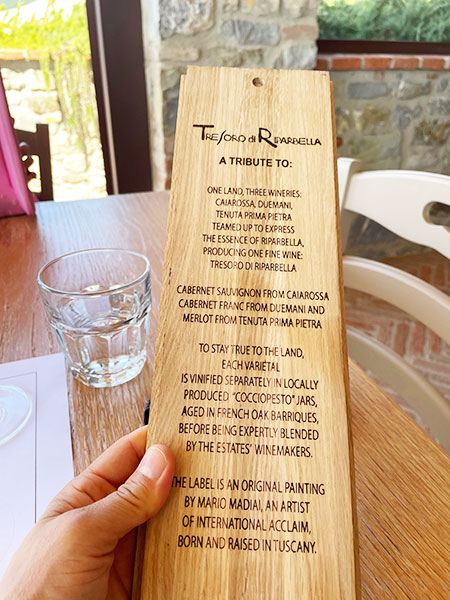 TRESORO di RIPARBELLA
A TRIBUTE TO:
ONE LAND, THREE WINERIES:
CAIAROSSA, DUEMANI,
TENUTA PRIMA PIETRA
TEAMED UP TO EXPRESS
THE ESSENCE OF RIPARBELLA,
PRODUCING ONE FINE WINE:
TRESORO DI RIPARBELLA
CABERNET SAUVIGNON FROM CAIAROSSA
CABERNET FRANC FROM DUEMANI AND
MERLOT FROM TENUTA PRIMA PIETRA
TO STAY TRUE TO THE LAND,
EACH VARIETAL
IS VINIFIED SEPARATELY IN LOCALLY
PRODUCED "COCCIOPESTO" JARS,
AGED IN FRENCH OAK BARRIQUES,
BEFORE BEING EXPERTLY BLENDED
BY THE ESTATES' WINEMAKERS.
THE LABEL IS AN ORIGINAL PAINTING
BY MARIO MADIAI, AN ARTIST
OF INTERNATIONAL ACCLAIM,
BORN AND RAISED IN TUSCANY.